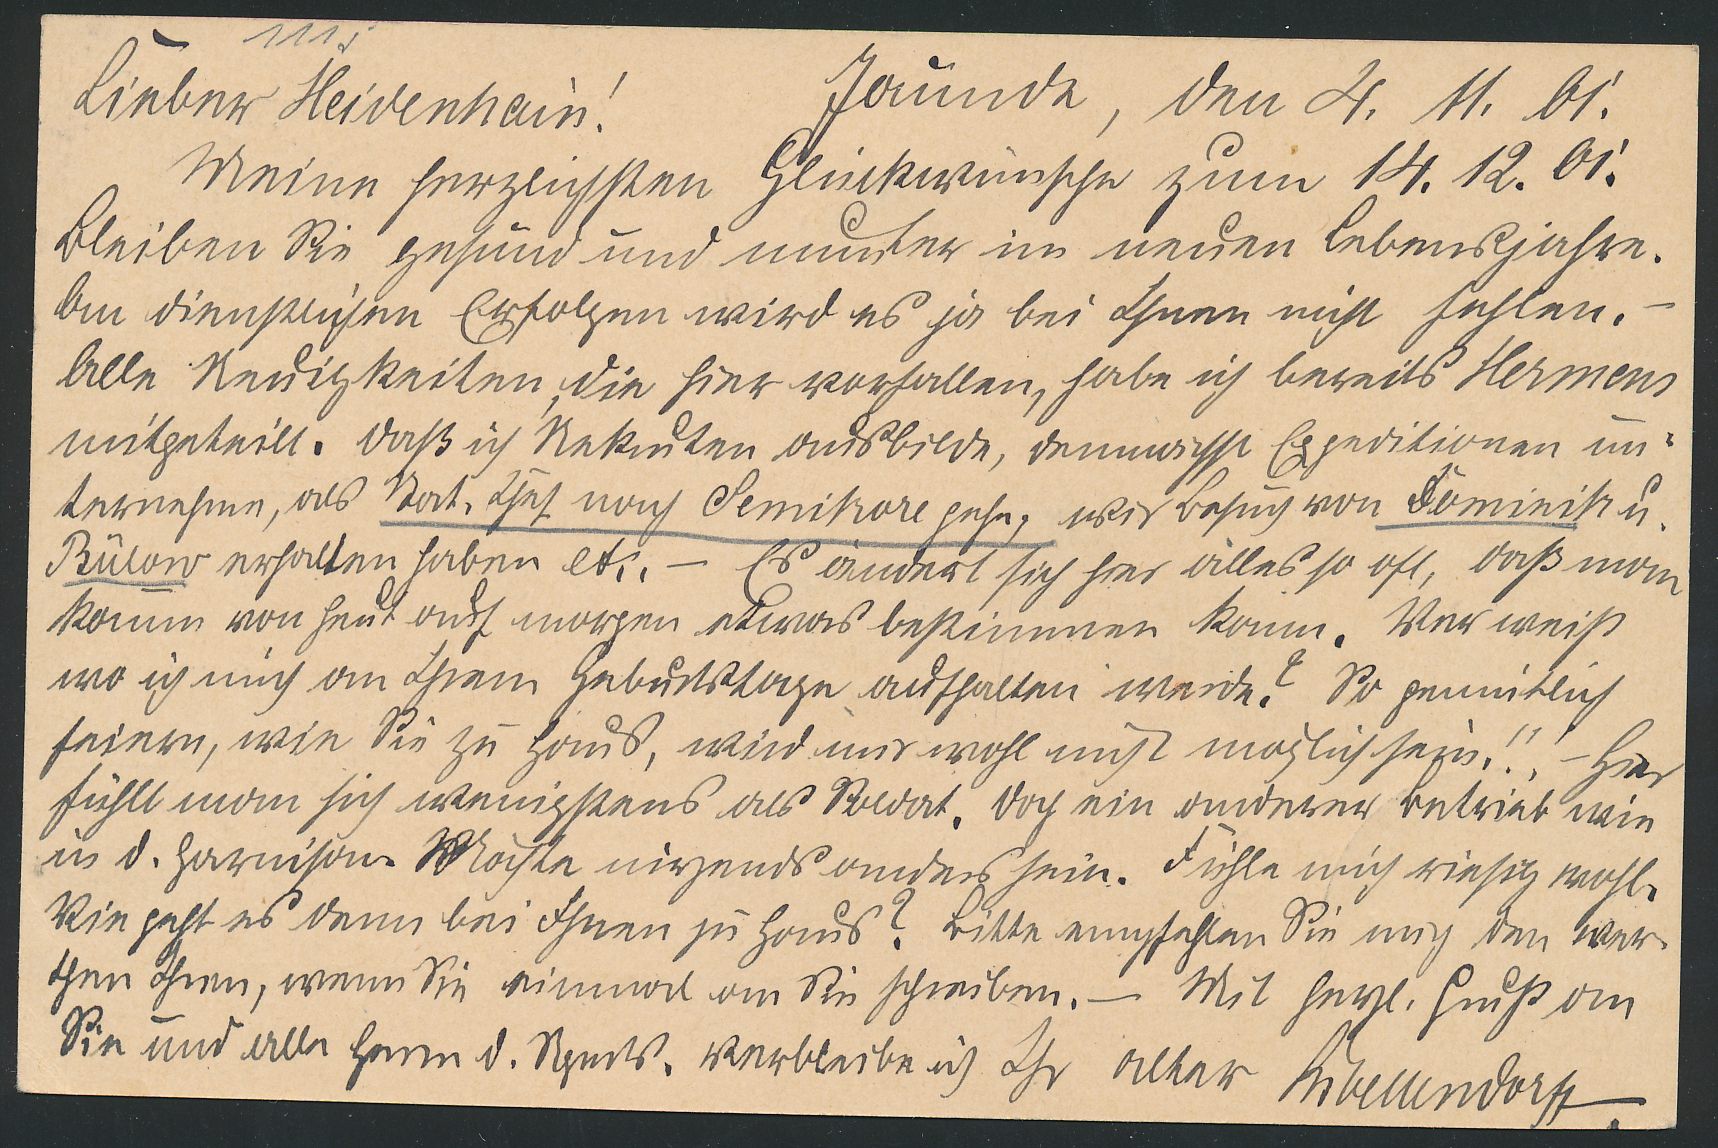 1115
Lieber Heidenhain! Jaunde, den 4. 11. 01.
Meine herzlichsten Glückwünsche zum 14. 12. 01.
Bleiben Sie gesund und munter im neuen Lebensjahre.
An dienstlichen Erfolgen wird es ja bei Ihnen nicht fehlen. –
Alle Neuigkeiten, die hier vorfallen, habe ich bereits Hermens
mitgeteilt. Daß ich Rekruten ausbilde, demnächst Expeditionen un-
ternehme, als Stat. Chef nach Semikore gehe, wir Besuch von Dominik u.
Bülow erhalten haben etc. – Es ändert sich hier alles so oft, daß man
kaum von heut auf morgen etwas bestimmen kann. Wer weiß
wo ich mich an Ihrem Geburtstage aufhalten werde? So gemütlich
feiern, wie Sie zu Haus, wird mir wohl nicht möglich sein!!! – Hier
fühlt man sich wenigstens als Soldat. Doch ein anderer Betrieb wie
in d. Garnison. Möchte nirgends anders sein. Fühle mich riesig wohl.
Wie geht es denn bei Ihnen zu Haus? Bitte empfehlen Sie mich den wer-
then Ihren, wenn Sie einmal an Sie schreiben. – Mit herzl. Gruß an
Sie und alle Herrn d. Regts. verbleibe ich Ihr alter